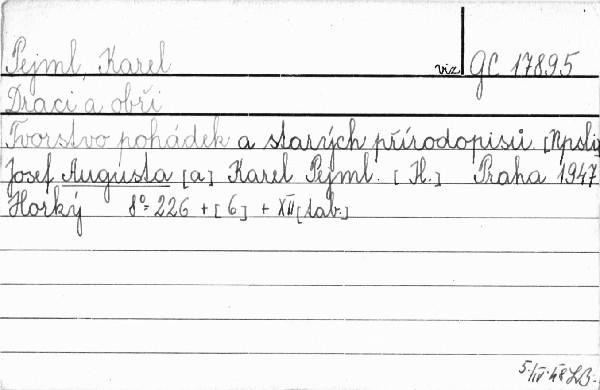 Pejml, Karel viz GC 17895
Draci a obři
Tvorstvo pohádek a starých přírodopisů. [Npsli]
Josef Augusta [a] Karel Pejml. [H.] Praha 1947
Horký 8°= 226 + [6] + XII [tab.]
5./IV.48 LB.